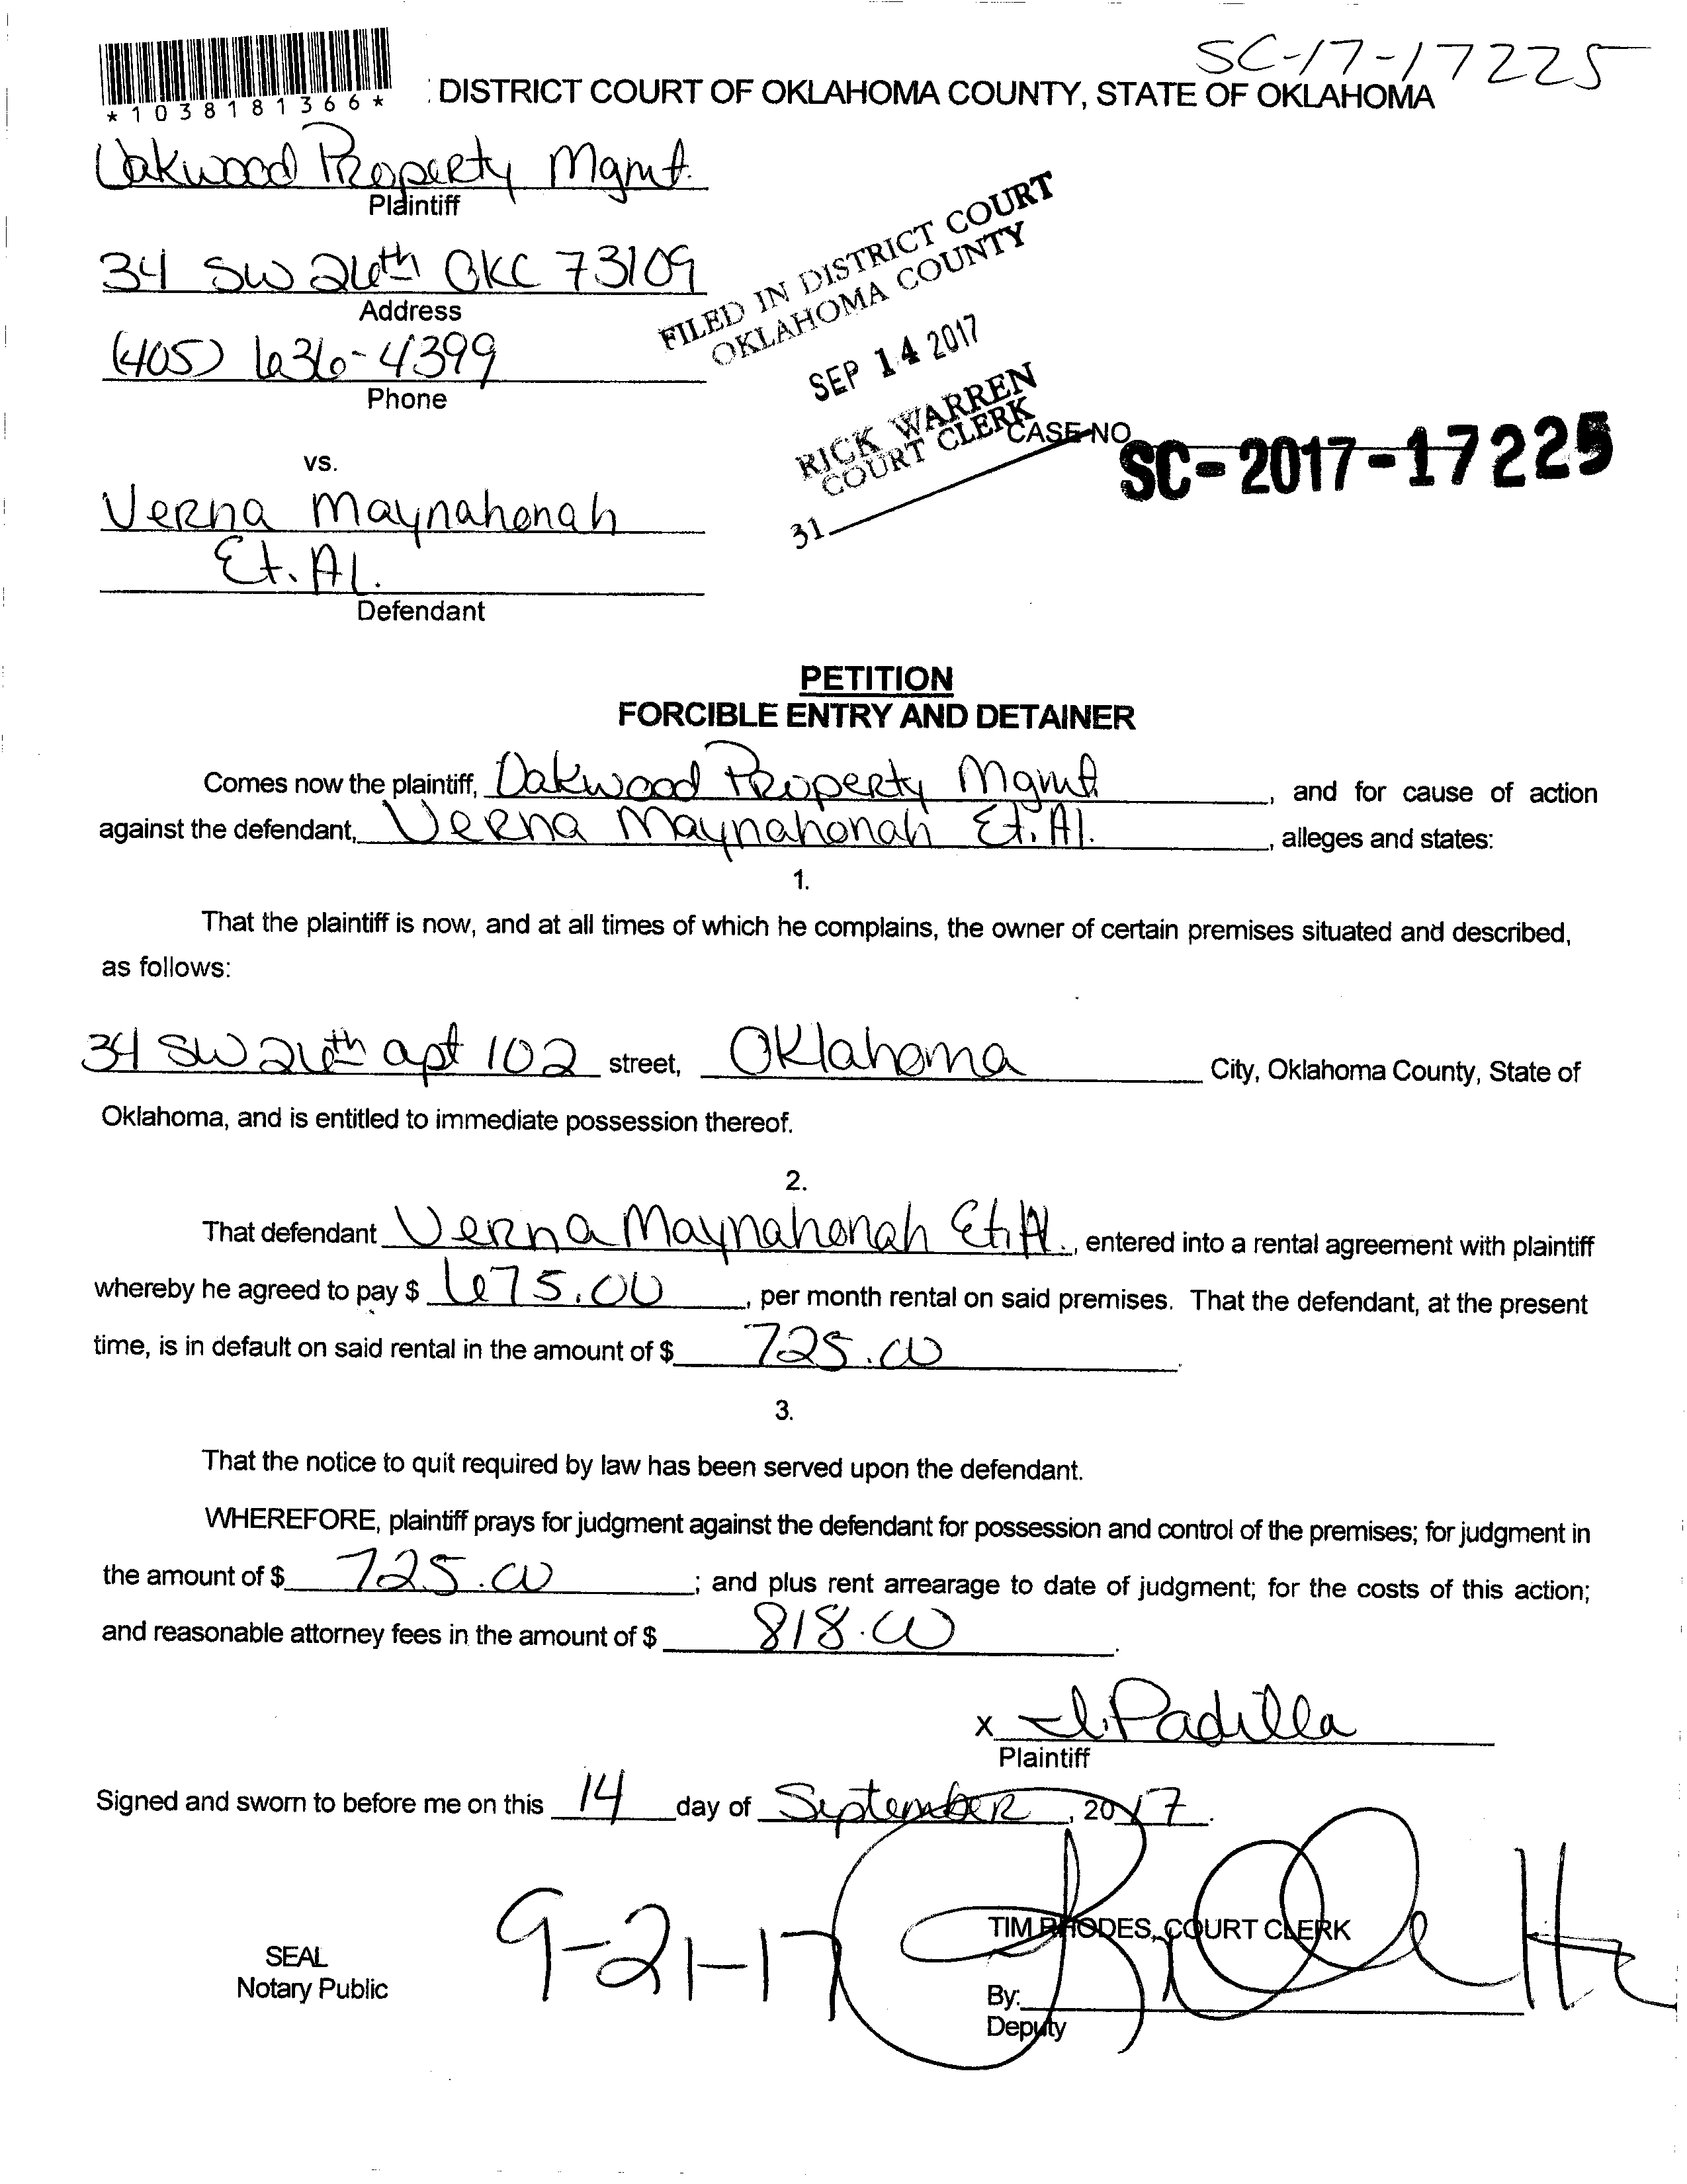 SC-17-17225
*1038181366*
DISTRICT COURT OF OKLAHOMA COUNTY, STATE OF OKLAHOMA
Oakwood Property Mgmt.
Plaintiff
34 SW 26th OKC 73109
Address
(405) 636-4399
Phone
FILED IN DISTRICT COURT
OKLAHOMA COUNTY
SEP 14 2017
RICK WARREN
COURT CLERK
31
CASE NO
SC-2017-17225
vs.
Verna Maynahonah
Et. Al.
Defendant
PETITION
FORCIBLE ENTRY AND DETAINER
Comes now the plaintiff, Oakwood Property Mgmt, and for cause of action
against the defendant, Verna Maynahonah Et. Al., alleges and states:
1.
That the plaintiff is now, and at all times of which he complains, the owner of certain premises situated and described,
as follows:
34 SW 26th apt 102 street, Oklahoma City, Oklahoma County, State of
Oklahoma, and is entitled to immediate possession thereof.
2.
That defendant Verna Maynahonah Et. Al., entered into a rental agreement with plaintiff
whereby he agreed to pay $ 675.00, per month rental on said premises. That the defendant, at the present
time, is in default on said rental in the amount of $ 725.00.
3.
That the notice to quit required by law has been served upon the defendant.
WHEREFORE, plaintiff prays for judgment against the defendant for possession and control of the premises; for judgment in
the amount of $ 725.00; and plus rent arrearage to date of judgment; for the costs of this action;
and reasonable attorney fees in the amount of $ 818.00.
x Padilla
Plaintiff
Signed and sworn to before me on this 14 day of September, 2017.
9-21-17
TIM RHODES, COURT CLERK
SEAL
Notary Public
By:
Deputy